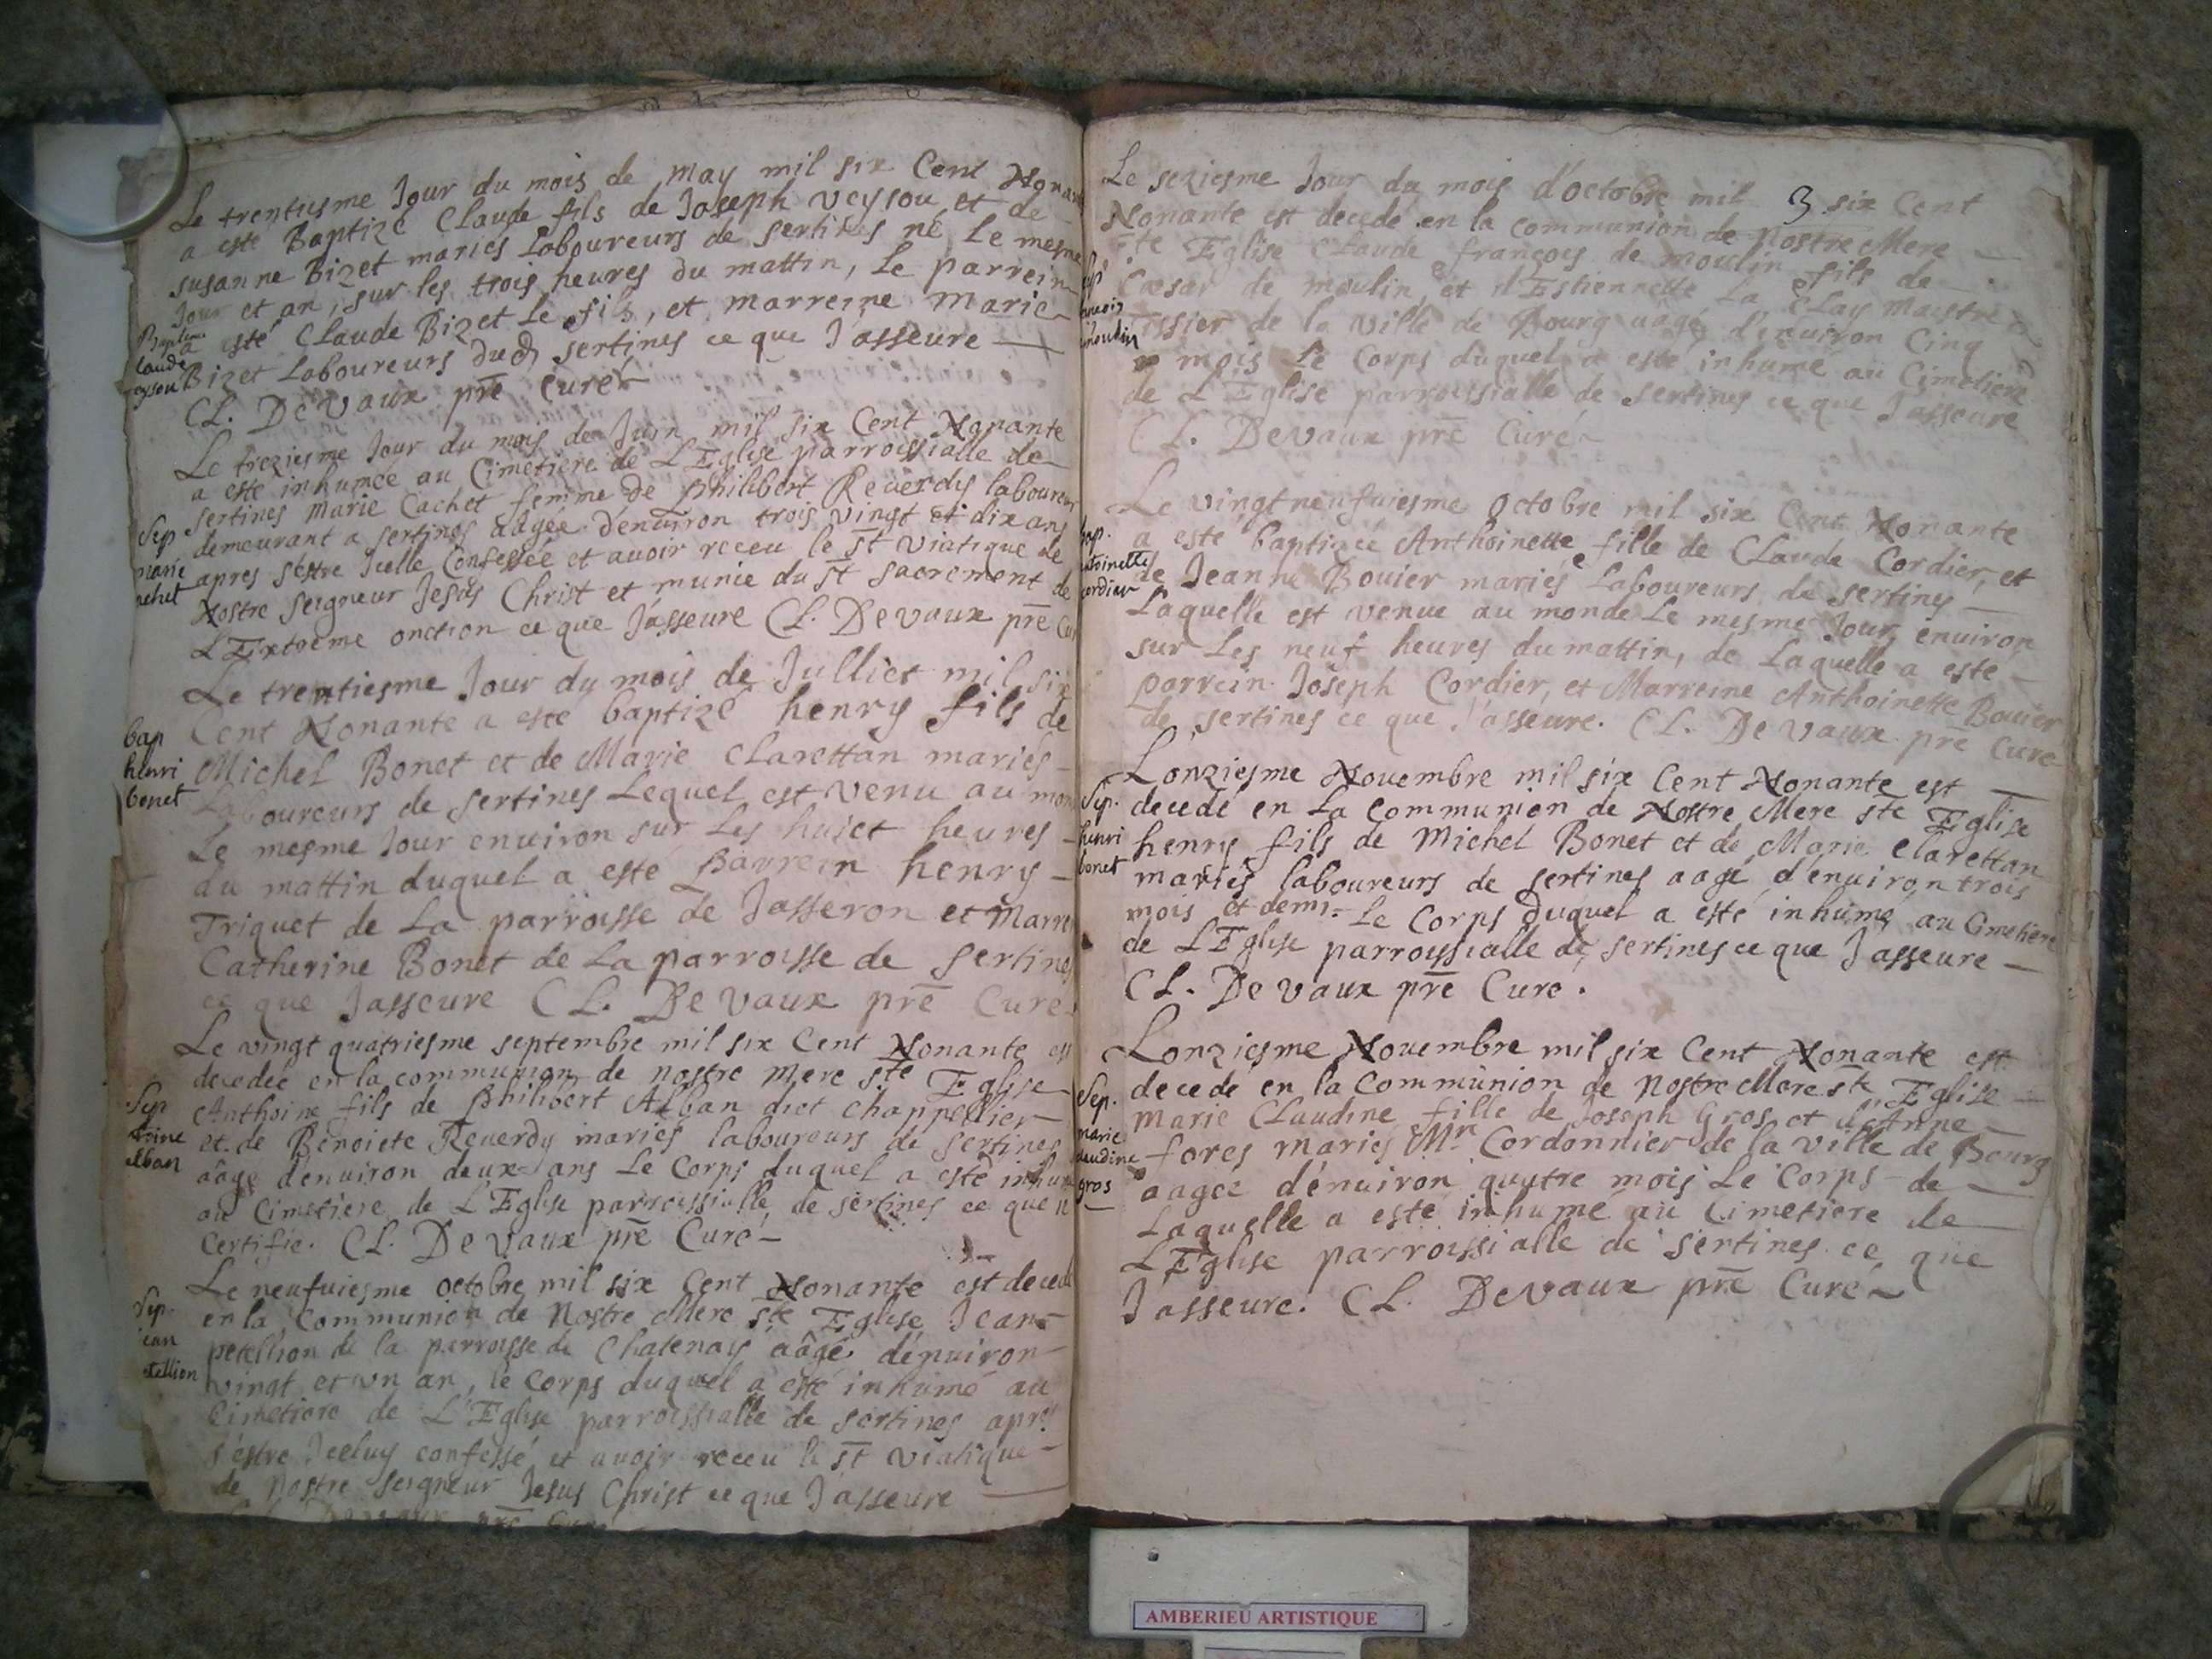 Le trentiesme Jour du mois de may mil six Cent
a esté Baptizé Claude fils de Joseph veysou et de
susanne Bizet mariés Laboureurs de sertines né Le mesme
Jour et an, sur les trois heures du mattin, Le parrein
Baptesme
a esté Claude Bizet Le fils, et marreine marie
Bizet Laboureurs dud sertines ce que J'asseure
CL. De vaux pre Curé
Le treziesme Jour du mois de Juin mil six Cent Nonante
a esté inhumée au Cimetiere de L'Eglise parroissialle de
sertines marie Cachet femme de philibert Reuerdy laboureur
Sep
marie
demeurant a sertines aagée d'enuiron trois vingt et dix ans
apres s'estre Icelle Confessée et auoir receu le st viatique de
Nostre seigneur Jesus Christ et munie du st sacrement de
L'Extreme onction ce que J'asseure CL. De vaux pre
Le trentiesme Jour du mois de Julliet mil six
bap
henri
bonet
Cent Nonante a esté baptizé henry fils de
Michel Bonet et de Marie Clarettan mariés
Laboureurs de sertines Lequel est venu au
Le mesme Jour enuiron sur Les huict heures
du mattin duquel a esté parrein henry
Triquet de La parroisse de Jasseron et
Catherine Bonet de La parroisse de sertines
ce que Jasseure CL. De vaux pre Curé
Le vingt quatriesme septembre mil six Cent Nonante est
decedée en la communion de nostre mere ste Eglise
Sep
alban
Anthoine fils de philibert Alban dict chappellier
et de Benoiete Reuerdy mariés laboureurs de sertines
aagé d'enuiron deux ans Le Corps duquel a esté
au Cimetiere de L'Eglise parroissialle de sertines ce que
Certifie. CL. De vaux pre Curé
Le neufuiesme octobre mil six Cent Nonante est
Sep.
en la Communion de Nostre Mere ste Eglise Jean
petellion de la parroisse de Chatenay aâgé d'enuiron
vingt et un an, le Corps duquel a esté inhumé au
Cimetiere de L'Eglise parroissialle de sertines
s'estre Iceluy confessé et auoir receu le st viatique
de Nostre seigneur Jesus Christ ce que J'asseure
Le seziesme Jour du mois d'octobre mil 3 six Cent
Nonante est decedé en la communion de Nostre Mere
ste Eglise Claude françois de moulin fils de
Cæsar de moulin, et d'Estiennette La Clay Maistre
Tissier de la ville de Bourg aâgé d'enuiron Cinq
mois Le Corps duquel a esté inhumé au Cimetiere
de L'Eglise parroissialle de sertines ce que J'asseure
CL. De vaux pre Curé
Le vingtneufuiesme octobre mil six Cent Nonante
bap.
a esté baptizée Anthoinette fille de Claude Cordier, et
de Jeanne Bouier mariés Laboureurs de sertines
Laquelle est venue au monde Le mesme Jour enuiron
sur Les neuf heures du mattin, de Laquelle a esté
parrein Joseph Cordier, et Marreine Anthoinette Bouier
de sertines ce que J'asseure. CL. De vaux pre Curé
Lonziesme Nouembre mil six Cent Nonante est
Sep.
henri
bonet
decedé en La communion de Nostre Mere ste Eglise
henry fils de Michel Bonet et de Marie Clarettan
mariés laboureurs de sertines aagé d'enuiron trois
mois et demi. Le Corps duquel a esté inhumé au Cimetiere
de L'Eglise parroissialle de sertines ce que J'asseure
CL. De vaux pre Curé.
Lonziesme Nouembre mil six Cent Nonante est
Sep.
marie
gros
decedé en la Communion de Nostre Mere ste Eglise
Marie Claudine fille de Joseph Gros et d'Anne
fores mariés Mr Cordonnier de la ville de Bourg
aagée d'enuiron quatre mois Le Corps de
Laquelle a esté inhumé au Cimetiere de
L'Eglise parroissialle de sertines ce que
J'asseure. CL. De vaux pre Curé
AMBERIEU ARTISTIQUE